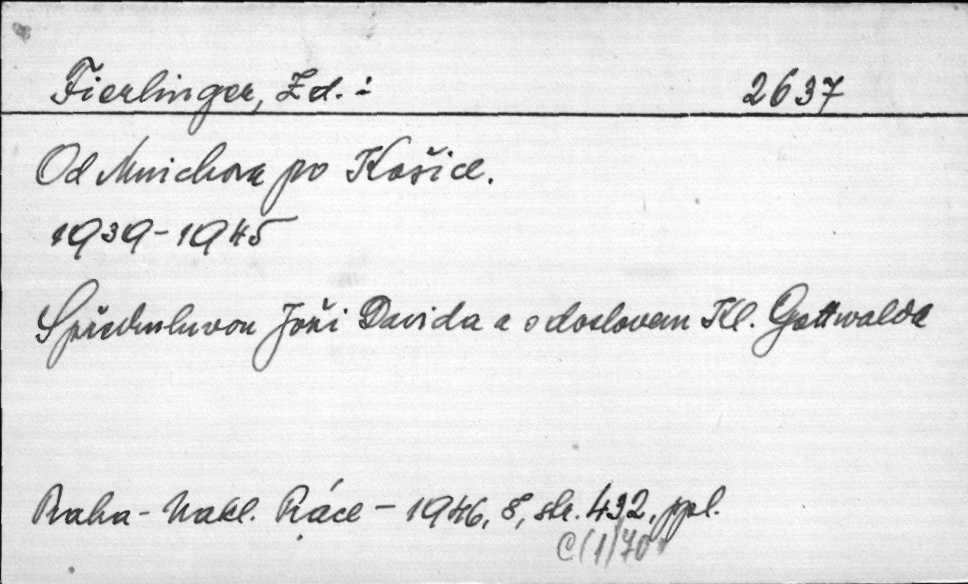 Fierlinger, Zd. : 2637
Od Mnichova po Košice.
1939-1945
S předmluvou Josi Davida a s doslovem Kl. Gottwalda
Praha - Nakl. Práce - 1946, 8, str. 432, ppl.
C(1)70